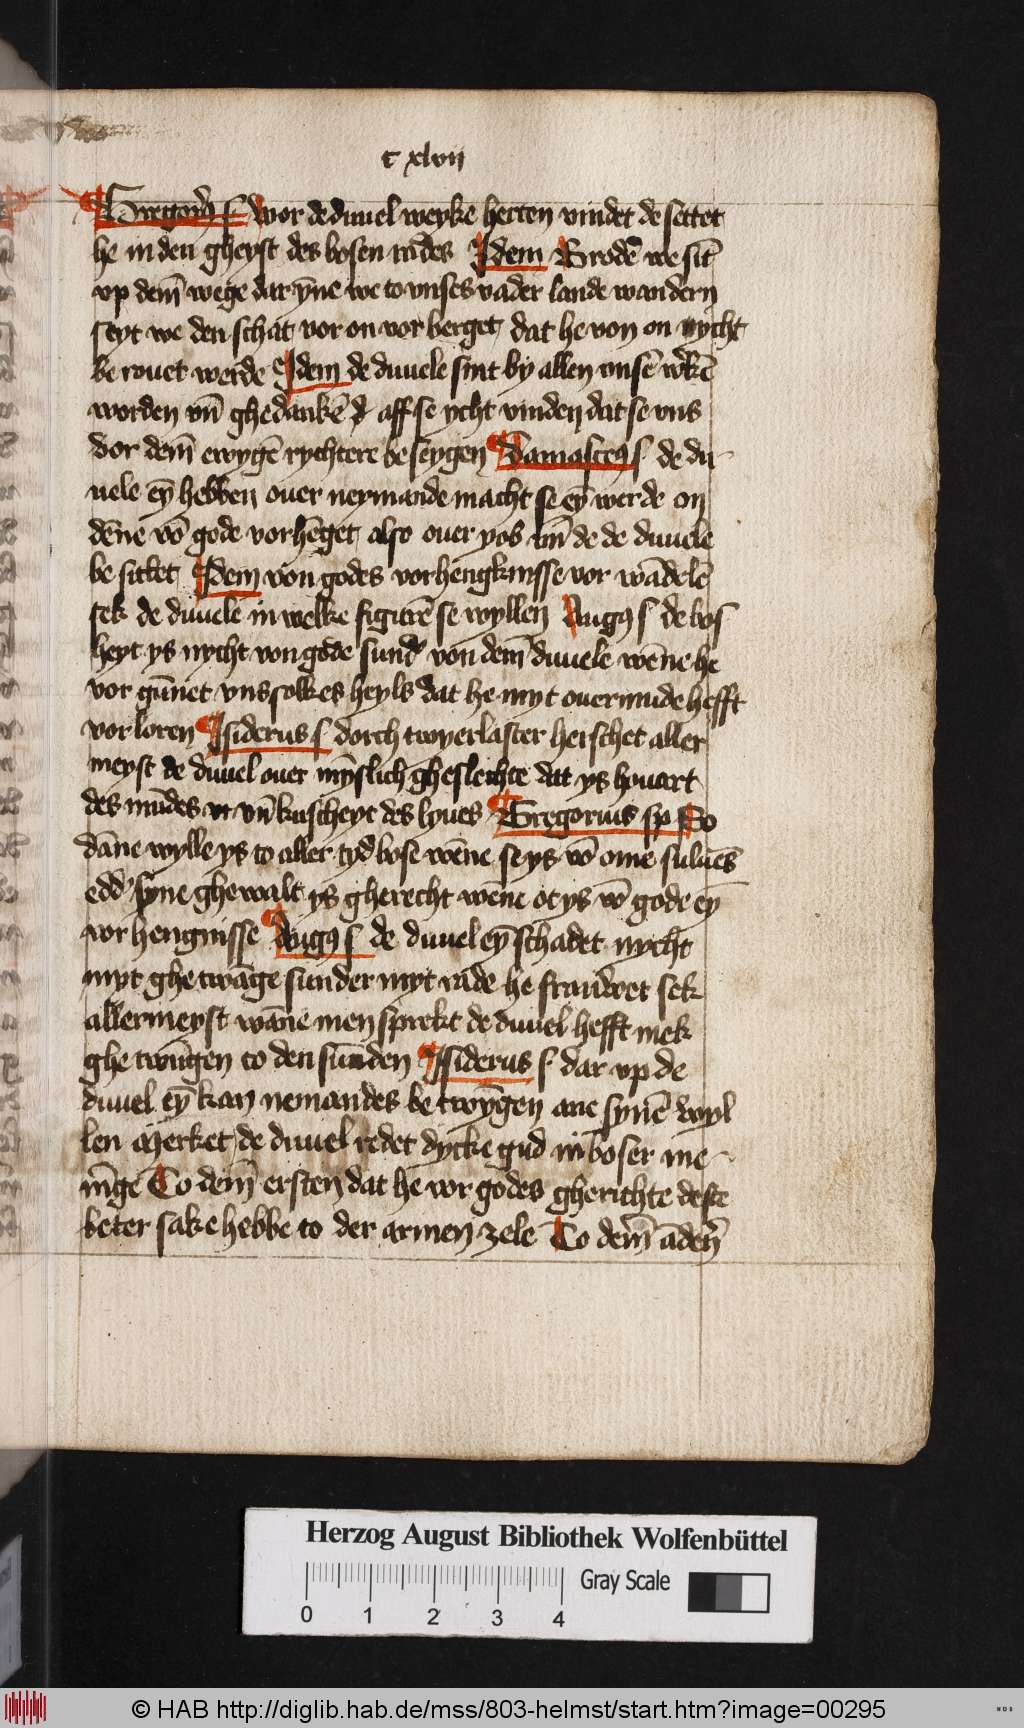 c xlvii
Gregori9 s Wor de duuel weyke herten vindet de settet
he in den gheyst des bosen mōdes Idem Brodē we sīt
vp dem̄ wege dar ȳne we to vnses vader lande wandern
seyt we den schat vor on vor berget dat he von on nycht
be rouet werde Idem de duuele sint by allen vnsē wkē
worden vn̄ ghedankē aff se ycht vinden dat se vns
vor dem̄ ewygē rychtere beseygen Damascen9 s de du
uele ey̅ hebben ouer neymande macht se ey̅ werde on
dēne vō gode vorhēget also ouer yob vn̄ de de duuele
besittet Idem von godes vorhengknisse vor wādelē
sek de duuele in welke figurē se wyllen Aug9 s de bos
heyt ys nycht von gode sund' von dem̄ duuele wēne he
vor gūnet vns solkes heyls dat he myt ouermude hefft
vorloren Isiderus s dorch twyerlaster herschet aller
meyst de duuel ouer mȳslich gheslechte dat ys houart
des mūdes vn̄ kuscheyt des lyues Gregorius sp So
dāne wylle ys to aller tyd bose wēne se ys vō ome suluēs
edd' syne ghewalt ys gherecht wēne ot ys vō gode ey̅
vorhengnisse Aug9 s de duuel ey̅ schadet nycht
myt ghetwāge sunder myt rade he frauwet sek
allermeyst wāne men sprekt de duuel hefft mek
ghe twūgen to den sunden Isiderus s dar vp de
duuel ey̅ kan nemandes be twȳgen ane synē wyl
len Merket de duuel redet dycke gud in boser me
nīge To dem̄ ersten dat he vor godes gherichte deste
beter sake hebbe to der armen zele To dem̄ āden̄
Herzog August Bibliothek Wolfenbüttel
Gray Scale
0 1 2 3 4
© HAB http://diglib.hab.de/mss/803-helmst/start.htm?image=00295